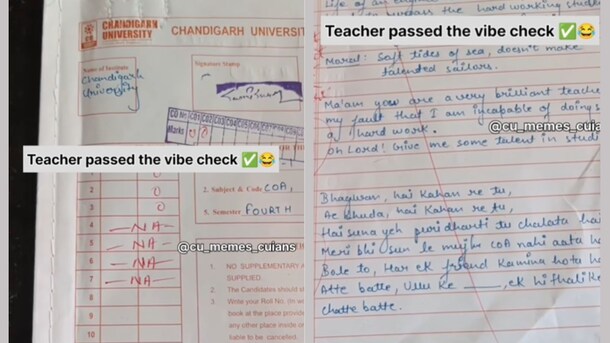 CHANDIGARH
UNIVERSITY
CHANDIGARH UNIVERSIT
Name of Institute
Chandigarh
University
Signature Stamp
CO No CO1 CO2 CO3 CO4 CO5 CO6
Marks 0 0
Teacher passed the vibe check ✅😂
1
2 0
3 0
4 -NA-
5 -NA-
6 -NA-
7 -NA-
10
2. Subject & Code COA,
3. Semester FOURTH
@cu_memes_cuians
1. NO SUPPLEMENTARY
SUPPLIED.
2. The Candidates should
3. Write your Roll No. (in wo
book at the place provided
any other place inside or
liable to be cancelled.
Life of an
the hard working studen
Teacher passed the vibe check ✅😂
Moral: Soft tides of sea, doesn't make
talented sailors.
Ma'am you are a very brilliant teache
my fault that I am incapable of doing s
a hard work.
@cu_memes_cuians
Oh Lord! Give me some talent in studi
Bhagwan, hai Kahan re tu,
Ae khuda, hai Kahan re tu,
Hai suna yeh puri dharti tu chalata hai
Meri bhi sun le mujhe COA nahi aata h
Bole to, Har ek friend Kamina hota h
Atte batte, Ullu ke ____, ek hi thali ke
chatte batte.